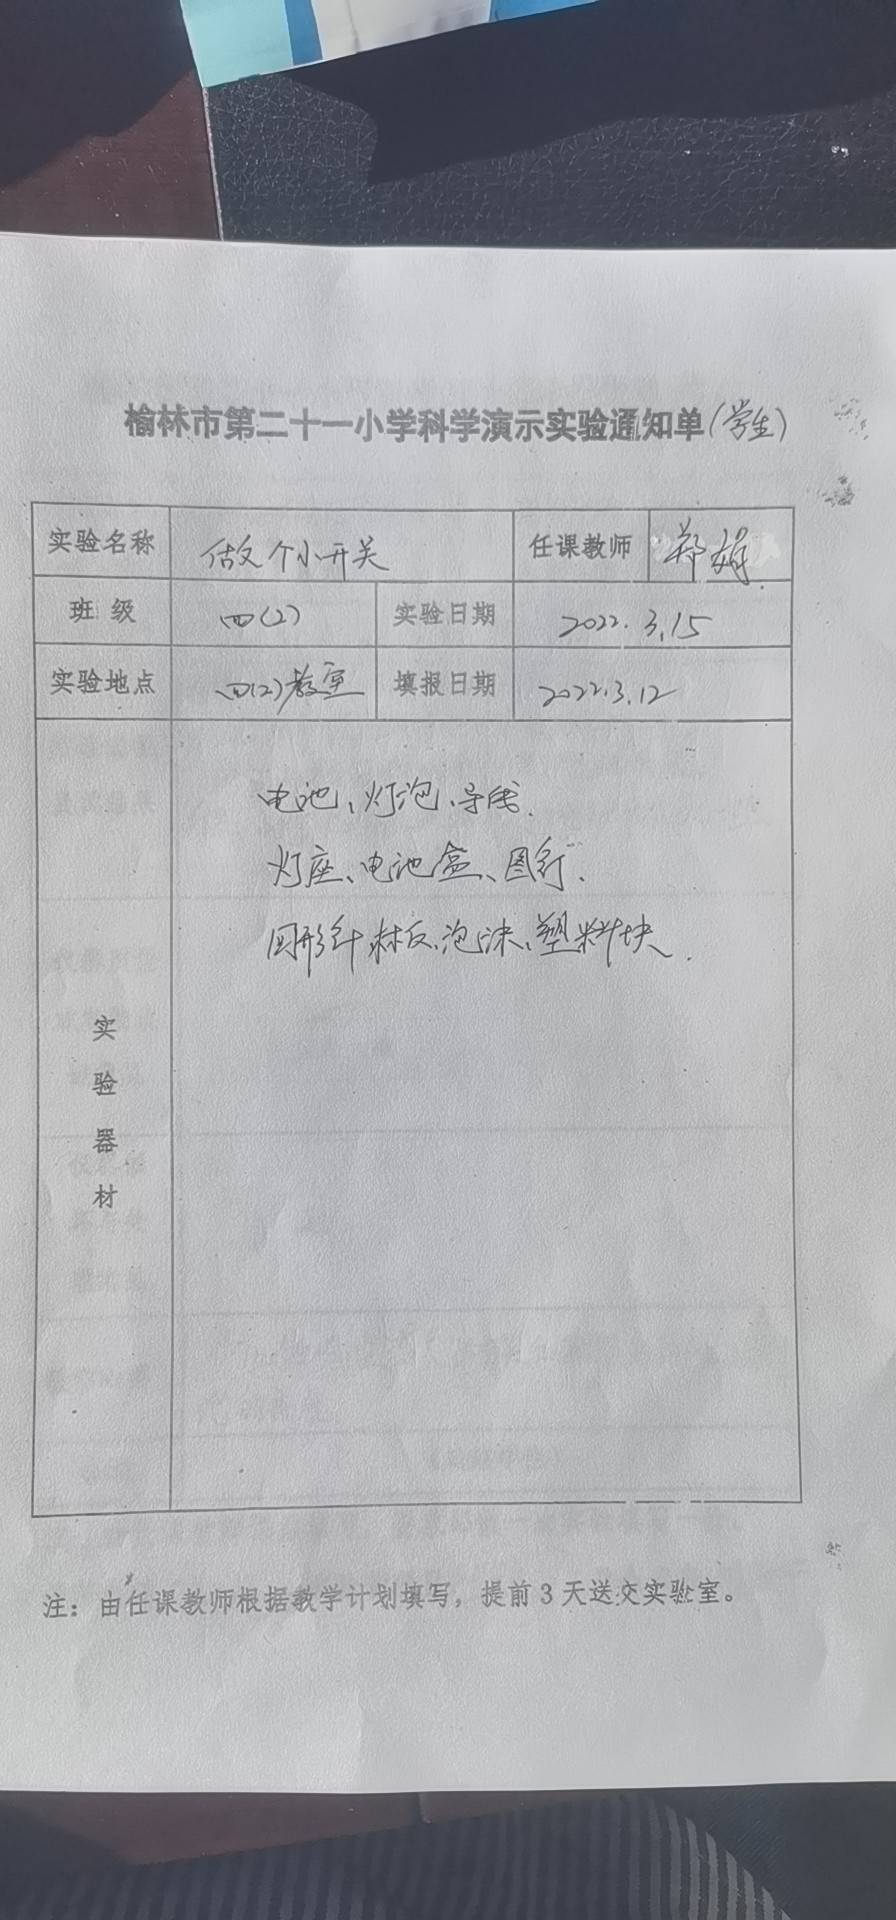 榆林市第二十一小学科学演示实验通知单(学生)
实验名称 做个小开关 任课教师 郑娟
班 级 四(2) 实验日期 2022.3.15
实验地点 四(2)教室 填报日期 2022.3.12
实验器材
电池、灯泡、导线、
灯座、电池盒、图钉、
回形针、木板、泡沫、塑料块.
注：由任课教师根据教学计划填写，提前3天送交实验室。